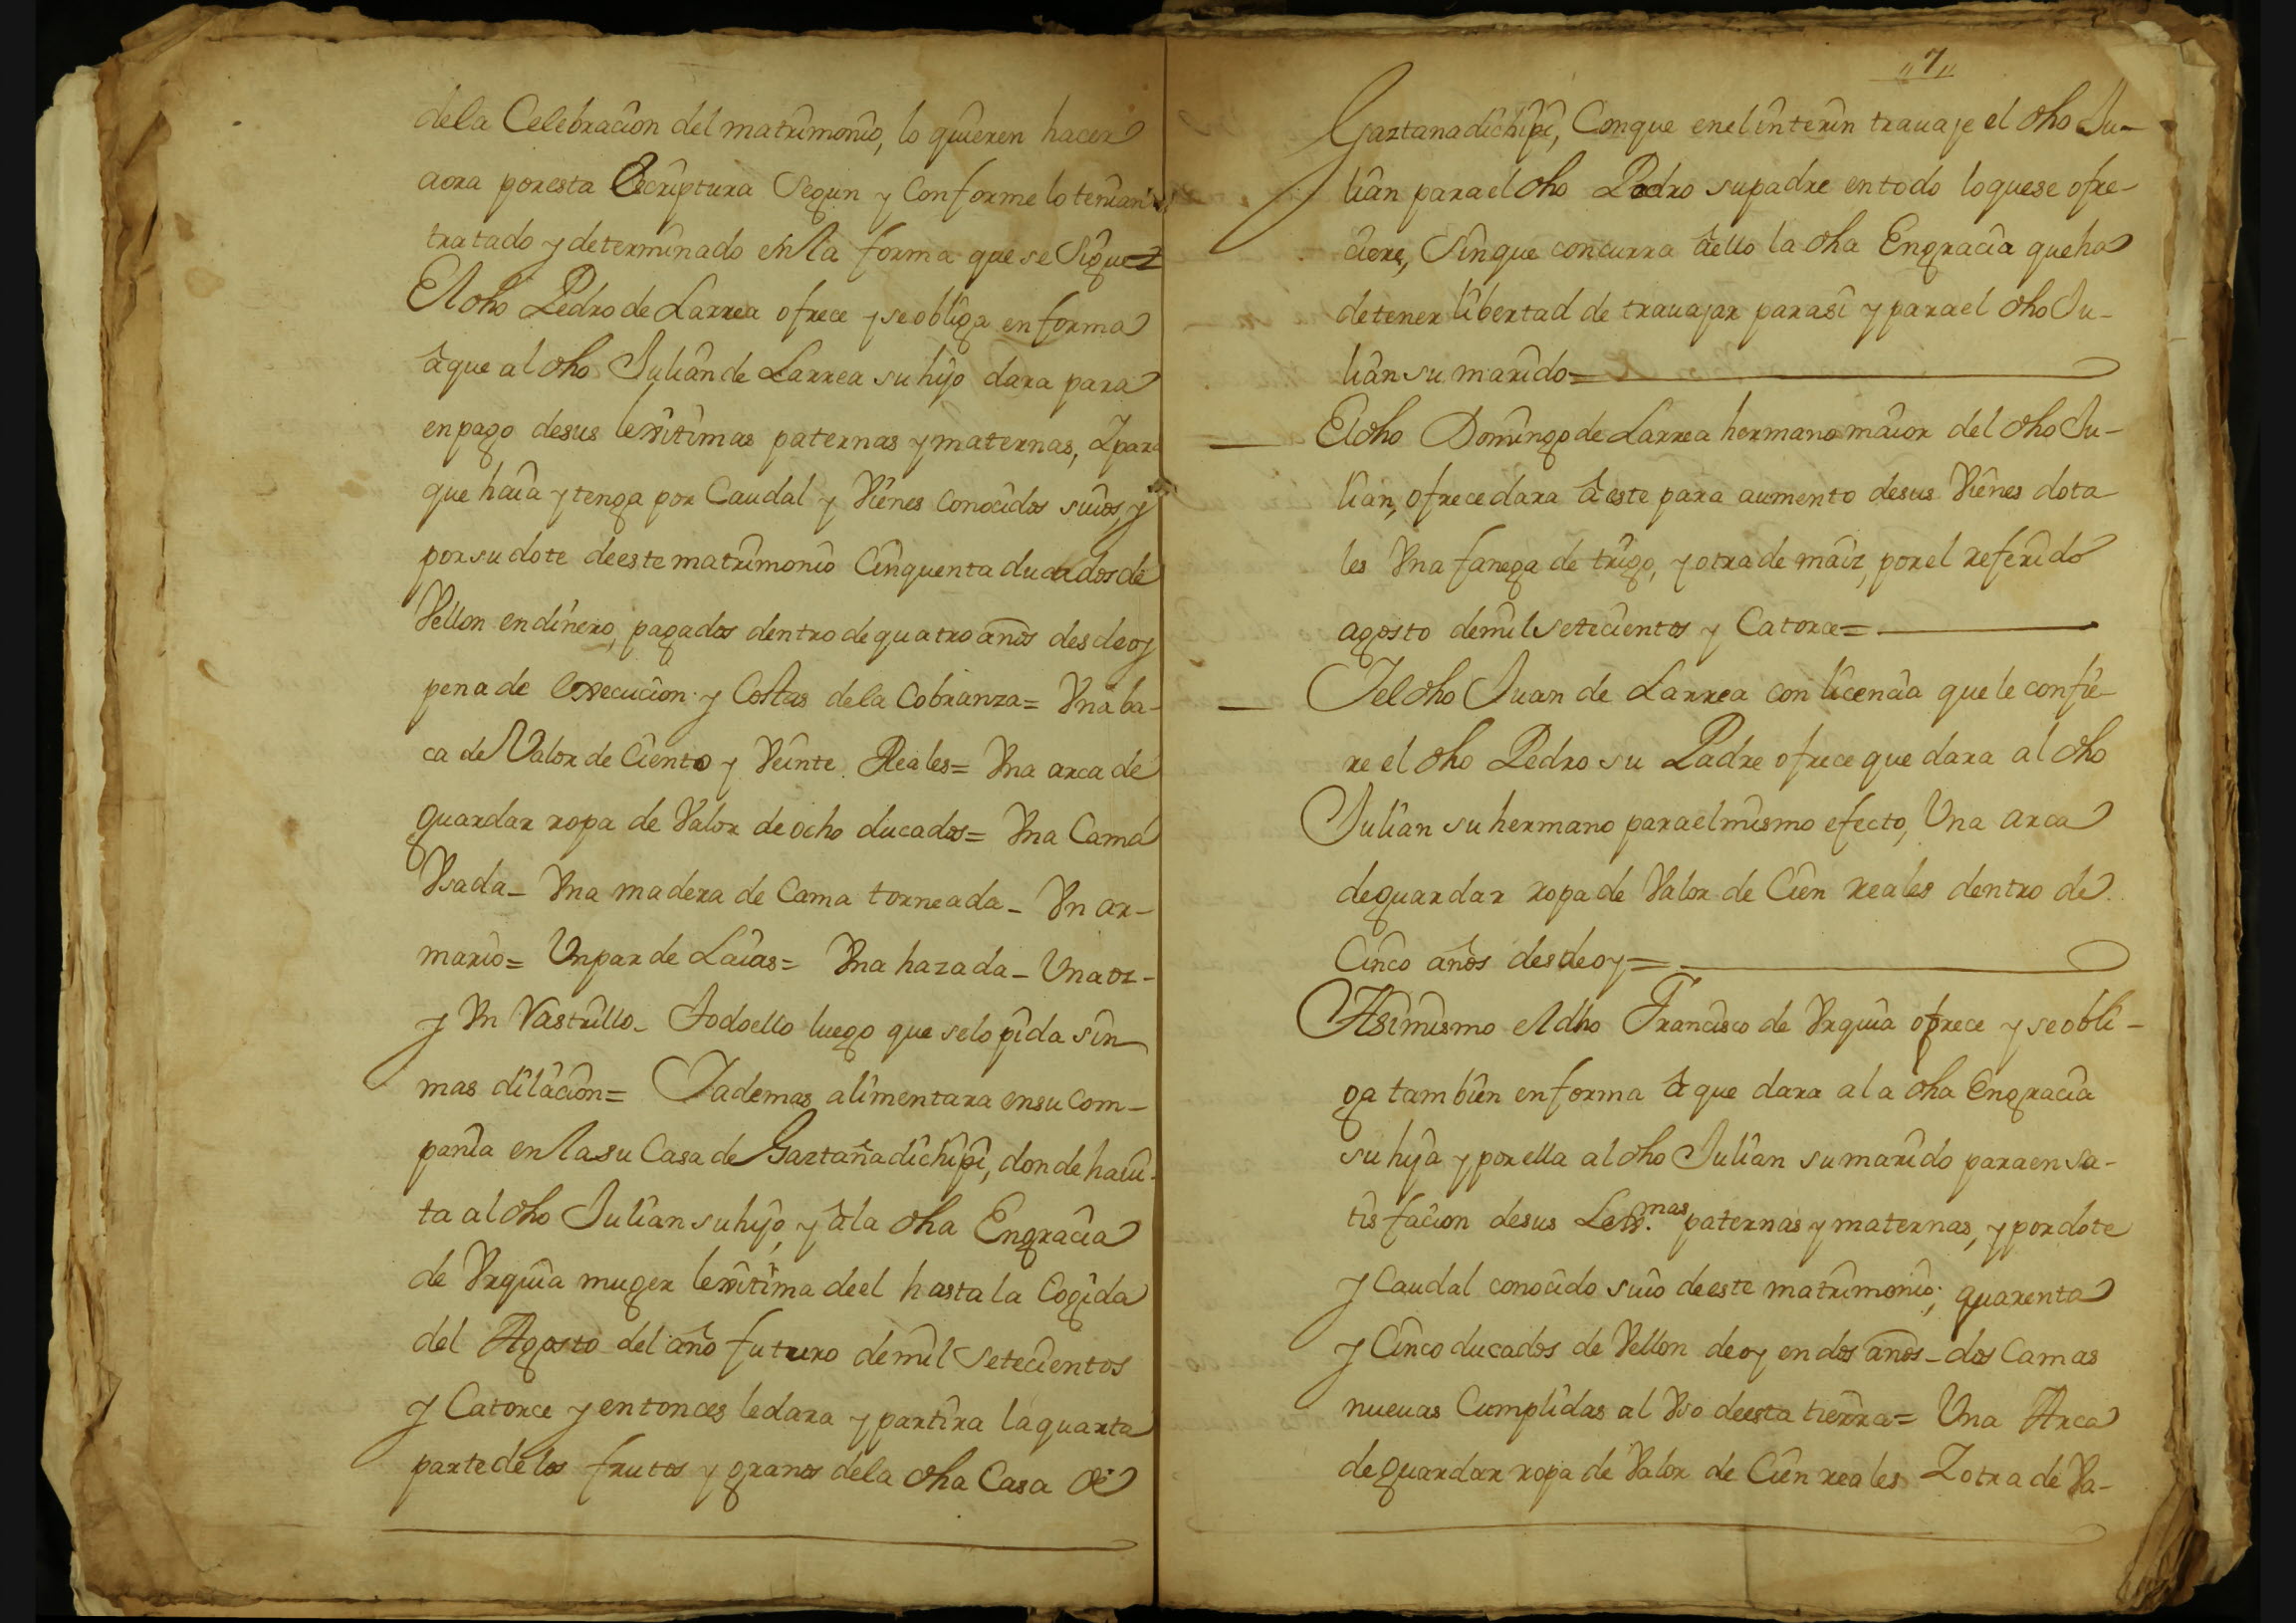 dela Celebracion del matrimonio, lo quieren hacer
aora por esta Escriptura Segun y Conforme lo tenian
tratado y determinado en la forma que se Sigue=
El dho Pedro de Larrea ofrece y se obliga en forma
à que al dho Julian de Larrea su hijo dara para
en pago de sus lexitimas paternas y maternas, Y para
que haia y tenga por Caudal y Vienes conocidos suios, y
por su dote de este matrimonio Cinquenta ducados de
Vellon en dinero, pagados dentro de quatro años desde oy
pena de execucion y Costas dela Cobranza= Vna ba-
ca de Valor de Ciento y Veinte Reales= Vna arca de
guardar ropa de Valor de ocho ducados= Vna Cama
Vsada_ Vna madera de Cama torneada_ Vn ar-
mario= Vn par de Laias= Vna hazada_ Vna oz-
y Vn Rastrillo_ Todo ello luego que se lo pida sin
mas dilacion= Y ademas alimentara en su com-
pania en la su Casa de Gaztañadichipi, donde havi-
ta al dho Julian su hijo, y à la dha Engracia
de Vrquia muger lexitima de el hasta la Cogida
del Agosto del año futuro de mil Setecientos
y Catorce y entonces le dara y partira la quarta
parte de los frutos y granos dela dha Casa de
"7"
Gaztanadichipi, Con que en el interin trauaje el dho Ju-
lian para el dho Pedro su padre en todo lo que se ofre-
ciere, Sin que concurra à ello la dha Engracia que ha
de tener libertad de trauajar para si y para el dho Ju-
lian su marido=
El dho Domingo de Larrea hermano maior del dho Ju-
lian, ofrece dara à este para aumento de sus Vienes dota
les Vna fanega de trigo, y otra de maiz, por el referido
agosto de mil setecientos y Catorce=
Y el dho Juan de Larrea con licencia que le confie-
re el dho Pedro su Padre ofrece que dara al dho
Julian su hermano para el mismo efecto, Vna arca
de guardar ropa de Valor de Cien reales dentro de
Cinco años desde oy=
Asimismo el dho Francisco de Vrquia ofrece y se obli-
ga tambien en forma à que dara a la dha Engracia
su hija y por ella al dho Julian su marido para en sa-
tisfacion de sus Lex.mas paternas y maternas, y por dote
y Caudal conocido suio de este matrimonio; quarenta
y Cinco ducados de Vellon de oy en dos años_ dos Camas
nueuas Cumplidas al Vso de esta tierra= Vna Arca
de guardar ropa de Valor de Cien reales Y otra de Va-